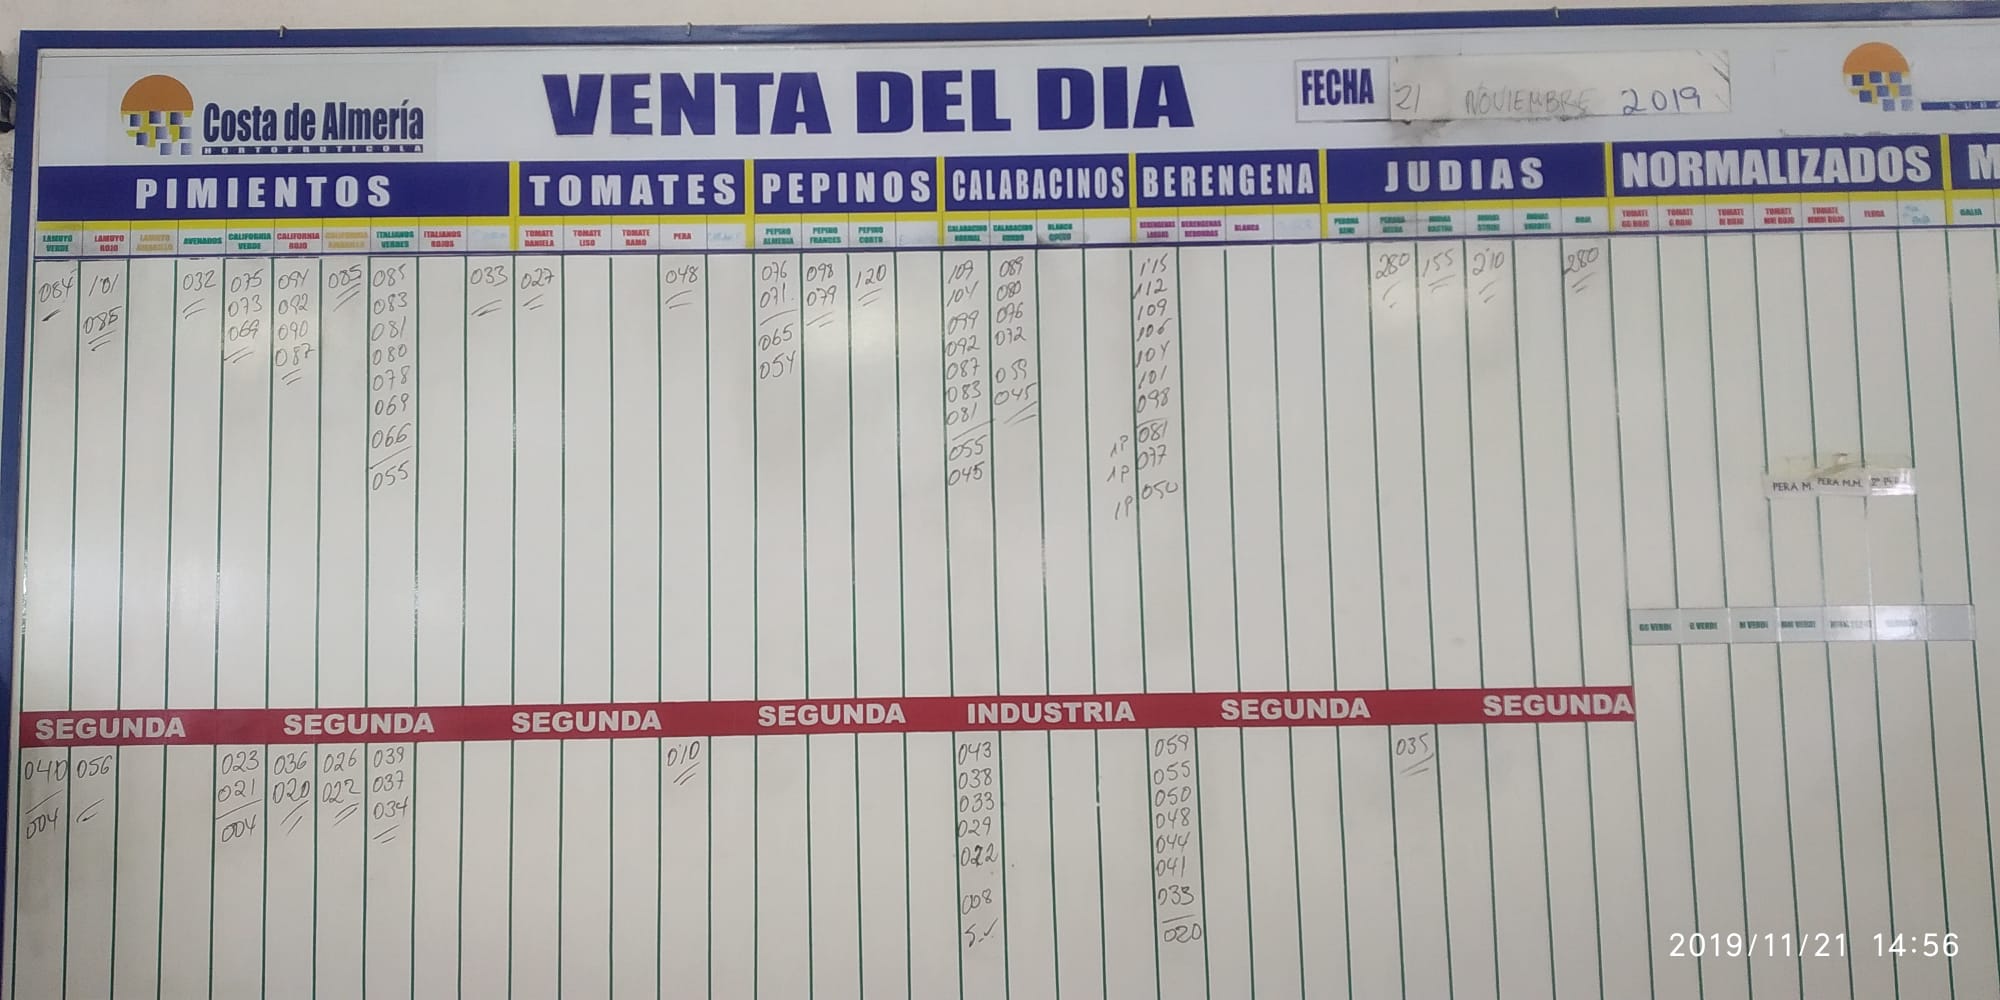 Costa de Almería
HORTOFRUTICOLA
VENTA DEL DIA
FECHA 21 NOVIEMBRE 2019
PIMIENTOS TOMATES PEPINOS CALABACINOS BERENGENA JUDIAS NORMALIZADOS M
LAMUYO VERDE
LAMUYO ROJO
LAMUYO AMARILLO
AVENADOS
CALIFORNIA VERDE
CALIFORNIA ROJO
CALIFORNIA AMARILLO
ITALIANOS VERDES
ITALIANOS ROJOS
TOMATE DANIELA
TOMATE LISO
TOMATE RAMO
PERA
PEPINO ALMERIA
PEPINO FRANCES
PEPINO CORTO
CALABACINO NORMAL
CALABACINO GORDO
BLANCO GORDO
BERENGENAS LARGAS
BERENGENAS REDONDAS
BLANCA
PERONA SEMI
PERONA
ROJA
TOMATE GG ROJO
TOMATE G ROJO
TOMATE M ROJO
TOMATE MM ROJO
TOMATE MMM ROJO
FLECA
GALIA
084
101
085
032
075
073
069
094
092
090
087
085
085
083
081
080
078
069
066
055
033
027
048
076
071
065
054
098
079
120
109
104
099
092
087
083
081
055
045
089
080
076
072
059
045
115
112
109
106
104
101
098
1P 081
1P 077
1P 050
280
155
210
280
PERA M. PERA M.M. 2ª PERA
GG VERDE G VERDE M VERDE MM VERDE
SEGUNDA SEGUNDA SEGUNDA SEGUNDA INDUSTRIA SEGUNDA SEGUNDA
040
004
056
023
021
004
036
020
026
022
039
037
034
010
043
038
033
029
022
008
059
055
050
048
044
041
033
020
035
2019/11/21 14:56